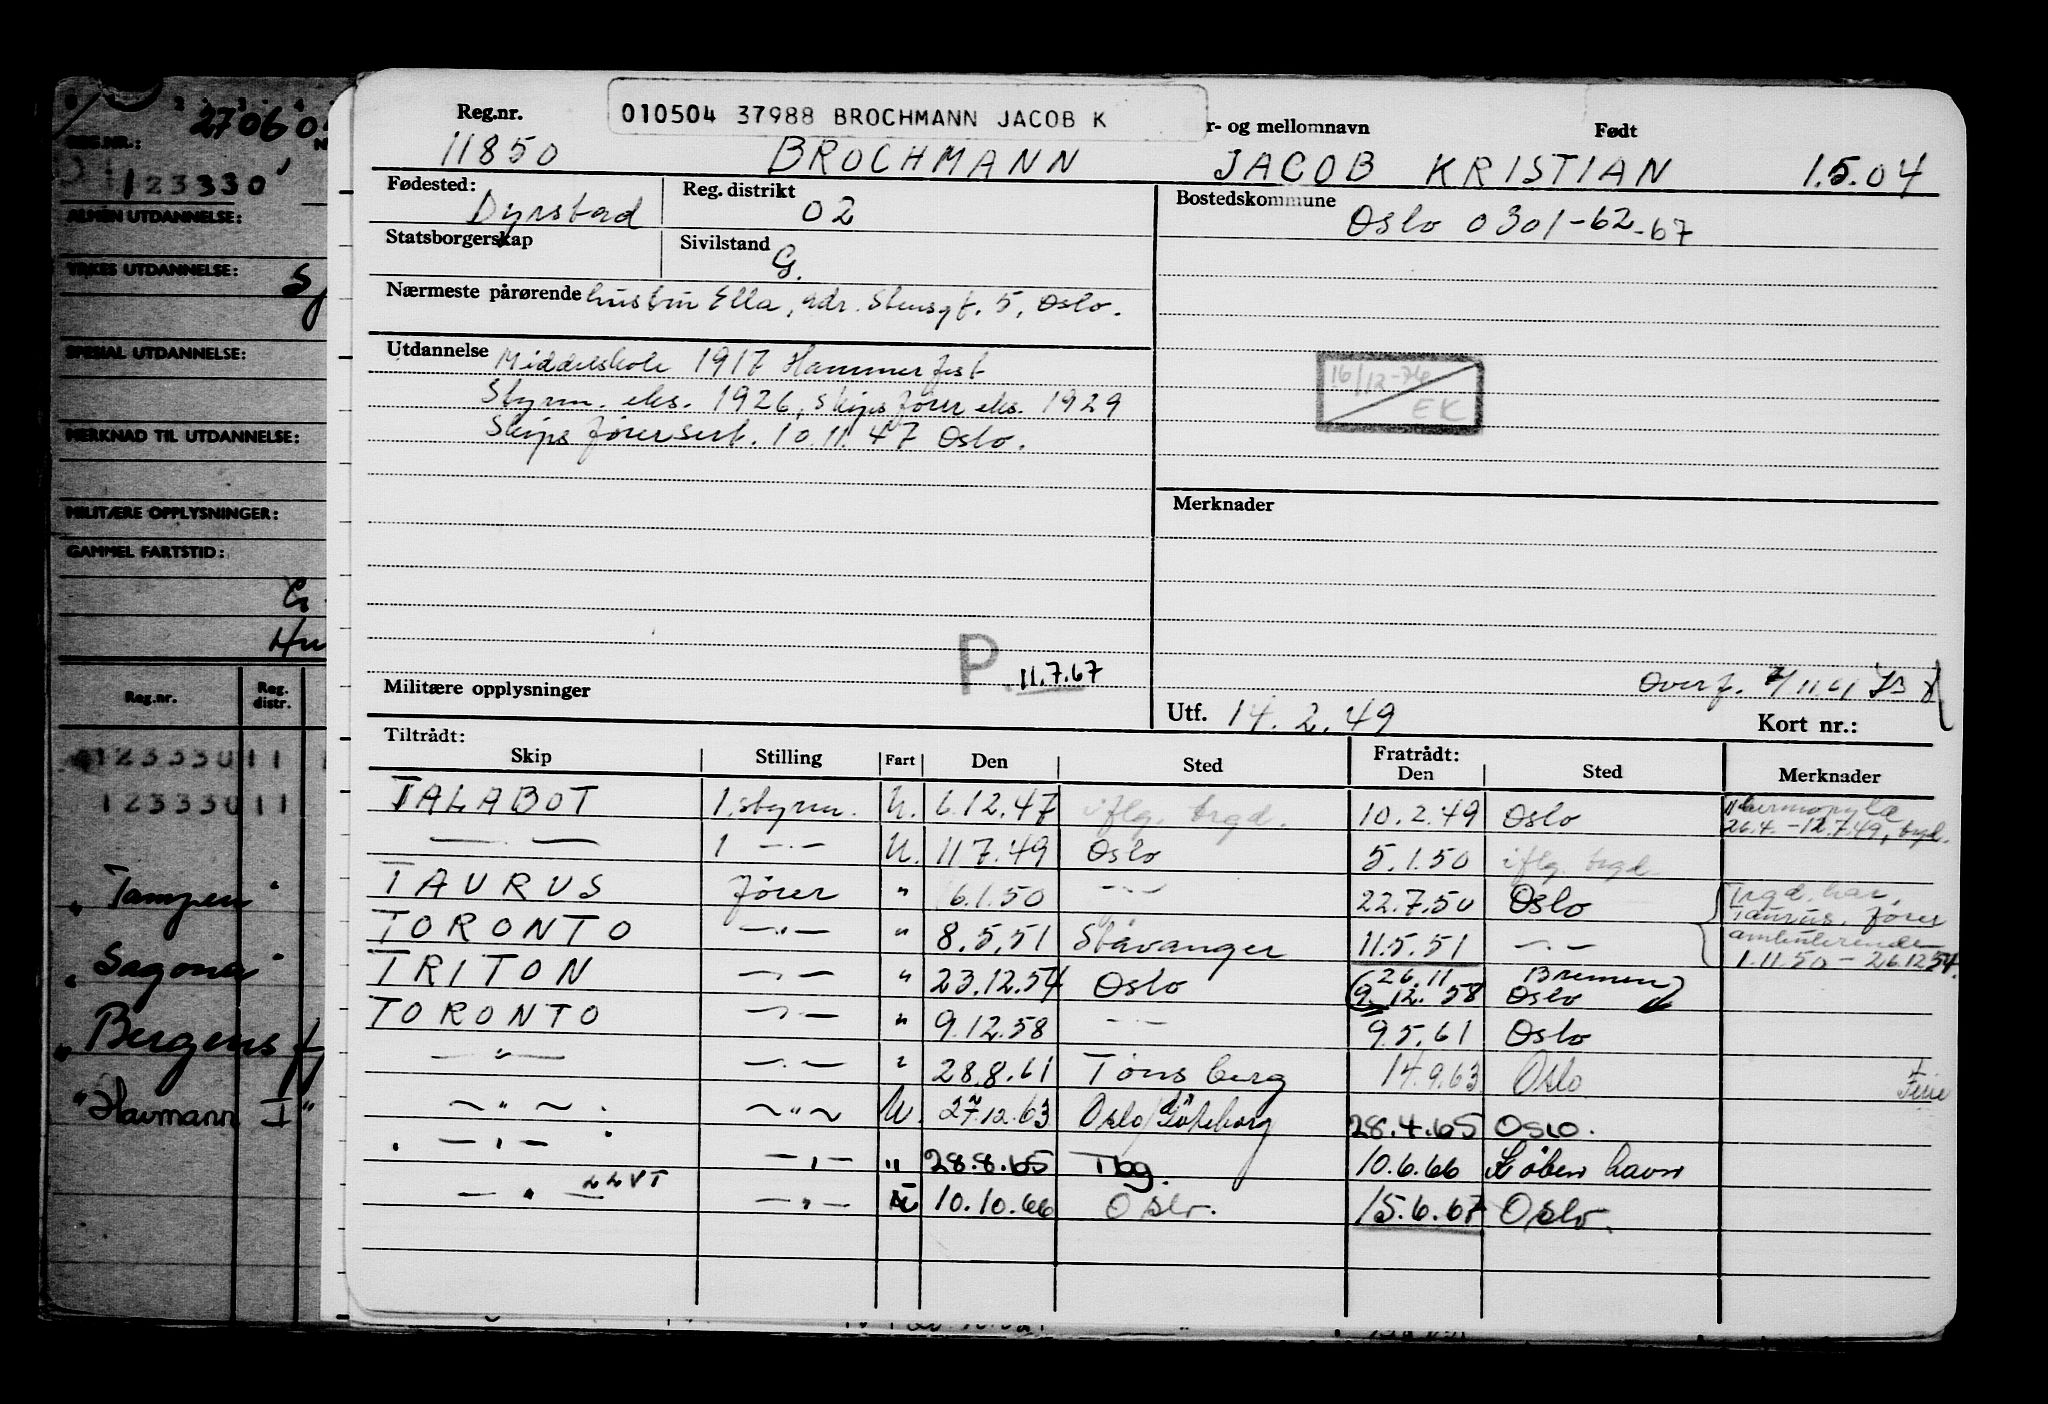 010504 37988 BROCHMANN JACOB K
Reg.nr. r- og mellomnavn Født
11850 BROCHMANN JACOB KRISTIAN 1.5.04
Fødested: Dyrstad Reg. distrikt 02 Bostedskommune Oslo 0301-62-67
Statsborgerskap Sivilstand G.
Nærmeste pårørende hustru Ella, adr. Stensgt. 5, Oslo.
Utdannelse Middelskole 1917 Hammerfest
Styrm. eks. 1926, skipsfører eks. 1929
Skipsførersert. 10.11.47 Oslo.
16/12-74
EK
Merknader
P. 11.7.67
Militære opplysninger
Overf.
Utf. 14.2.49 Kort nr.:
Tiltrådt: Fratrådt:
Skip Stilling Fart Den Sted Den Sted Merknader
TALABOT 1. styrm. U. 6.12.47 iflg. trgd. 10.2.49 Oslo "Thermopylæ
26.4.-12.7.49, trgd.
— — 1 —.— U. 11 7.49 Oslo 5.1.50 iflg. trgd
TAURUS fører " 6.1.50 —"— 22.7.50 Oslo Trgd. har,
Taurus, fører
TORONTO —"— " 8.5.51 Stavanger 11.5.51 —.— ambulerende
1.11.50 - 26.12.54.
TRITON —"— " 23.12.54 Oslo (26.11 Bremen)
9.12.58 Oslo
TORONTO —"— " 9.12.58 —"— 9.5.61 Oslo
—"— —"— " 28.8.61 Tønsberg 14.9.63 Oslo Ferie
—"— —"— U. 27.12.63 Oslo/Göteborg 28.4.65 Oslo.
—"— —"— " 28.8.65 Tbg. 10.6.66 København
—"— LLVT —"— U 10.10.66 Oslo. 15.6.67 Oslo.
27060
REG.NR.:
123330
ALMEN UTDANNELSE:
YRKES UTDANNELSE:
SPESIAL UTDANNELSE:
MERKNAD TIL UTDANNELSE:
MILITÆRE OPPLYSNINGER:
GAMMEL FARTSTID:
Reg.nr. Reg. distr.
123330 11
123330 11
"Tampen"
"Sagona"
"Bergensf
"Havmann I"